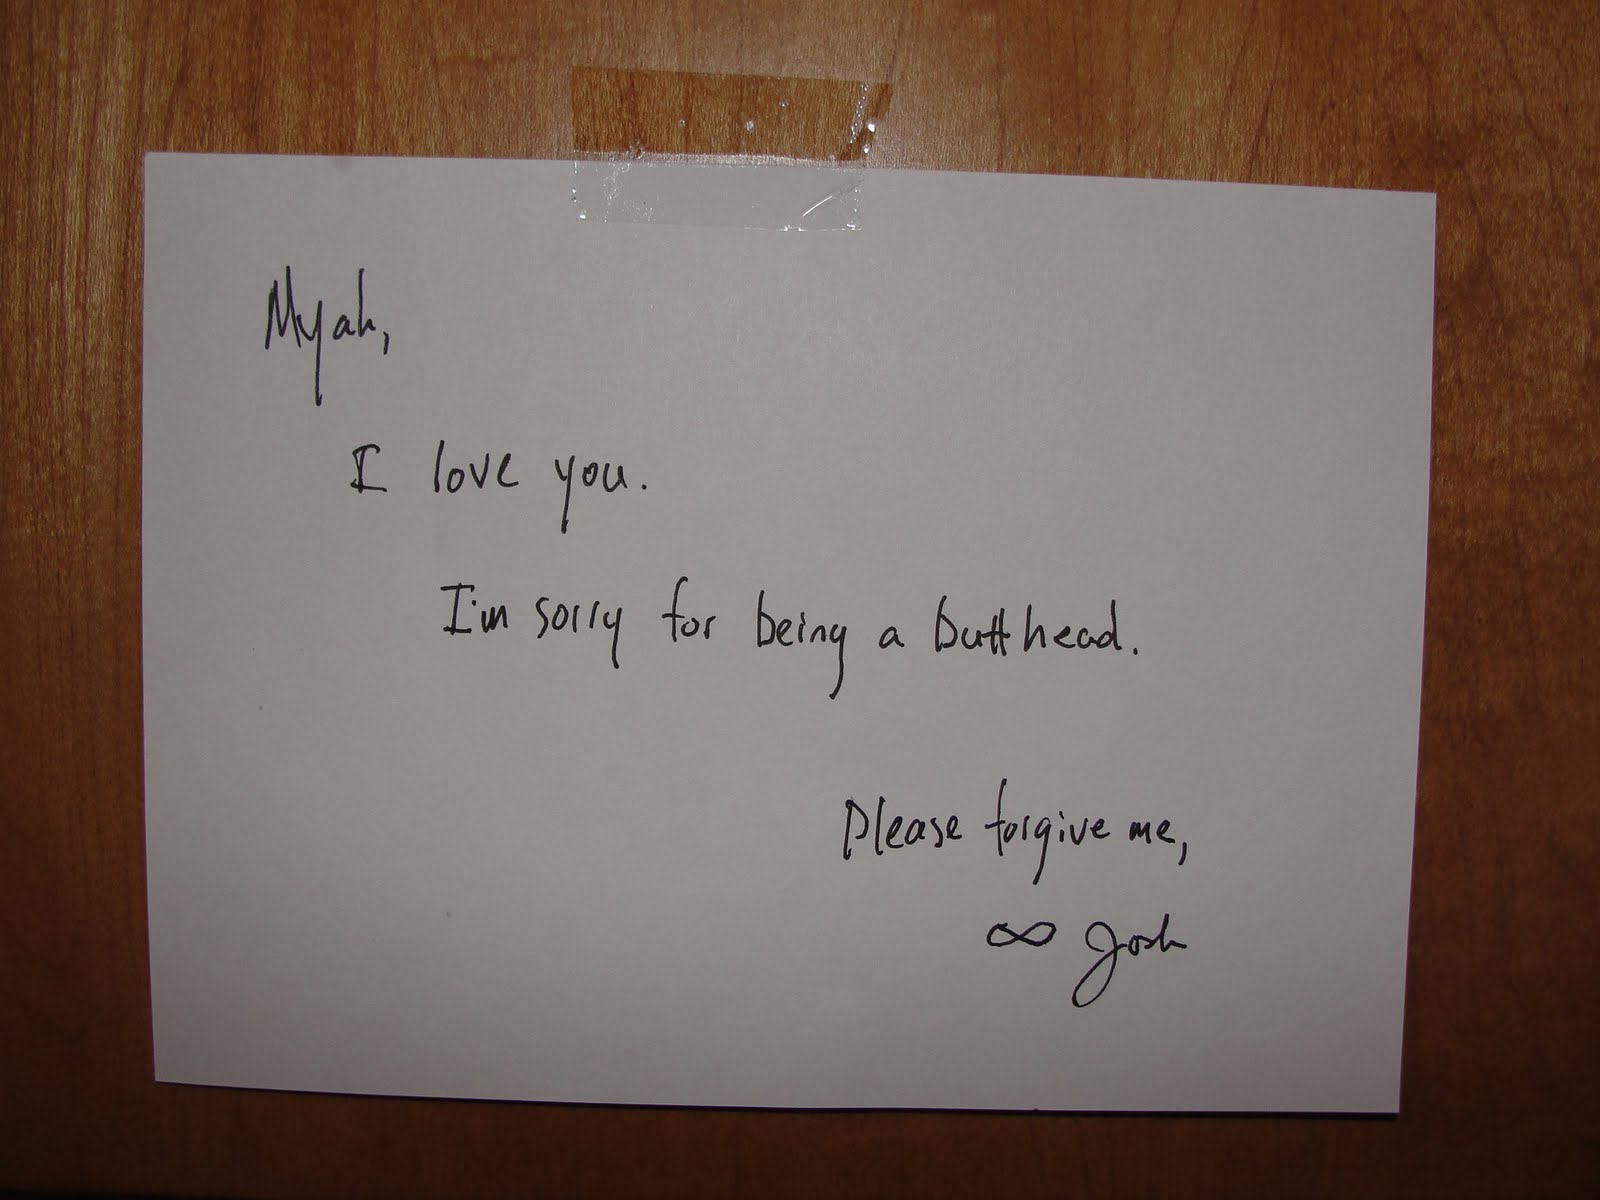 Myah,
I love you.
I'm sorry for being a butthead.
Please forgive me,
∞ Josh